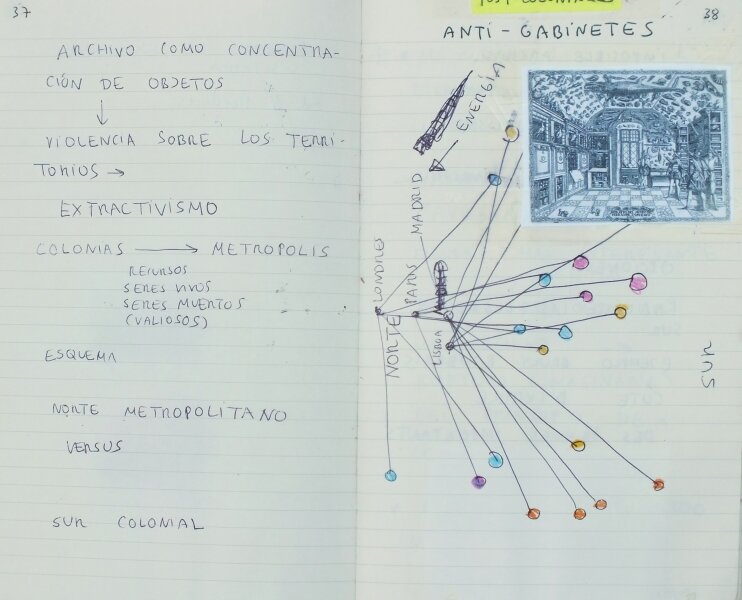 37
ARCHIVO COMO CONCENTRA-
CIÓN DE OBJETOS
↓
VIOLENCIA SOBRE LOS TERRI-
TORIOS →
EXTRACTIVISMO
COLONIAS → METROPOLIS
RECURSOS
SERES VIVOS
SERES MUERTOS
(VALIOSOS)
ESQUEMA
NORTE METROPOLITANO
VERSUS
SUR COLONIAL
38
ANTI-GABINETES
ENERGÍA
MADRID
PARIS
LONDRES
NORTE
LISBOA
SUR